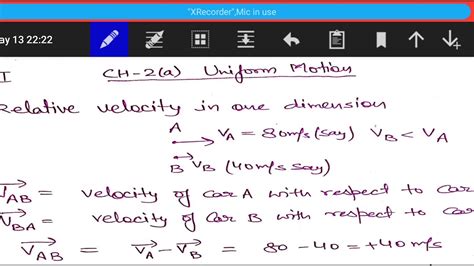 "XRecorder",Mic in use
ay 13 22:22
I CH-2(a) Uniform Motion
Relative velocity in one dimension
A
V_A = 80m/s (say) V_B < V_A
B V_B (40m/s say)
V_AB = velocity of car A with respect to car
V_BA = velocity of car B with respect to car
V_AB = V_A - V_B = 80 - 40 = +40 m/s